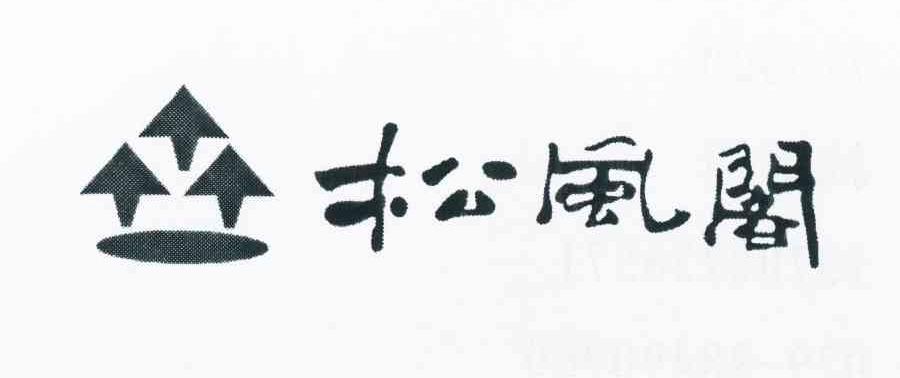 松風閣